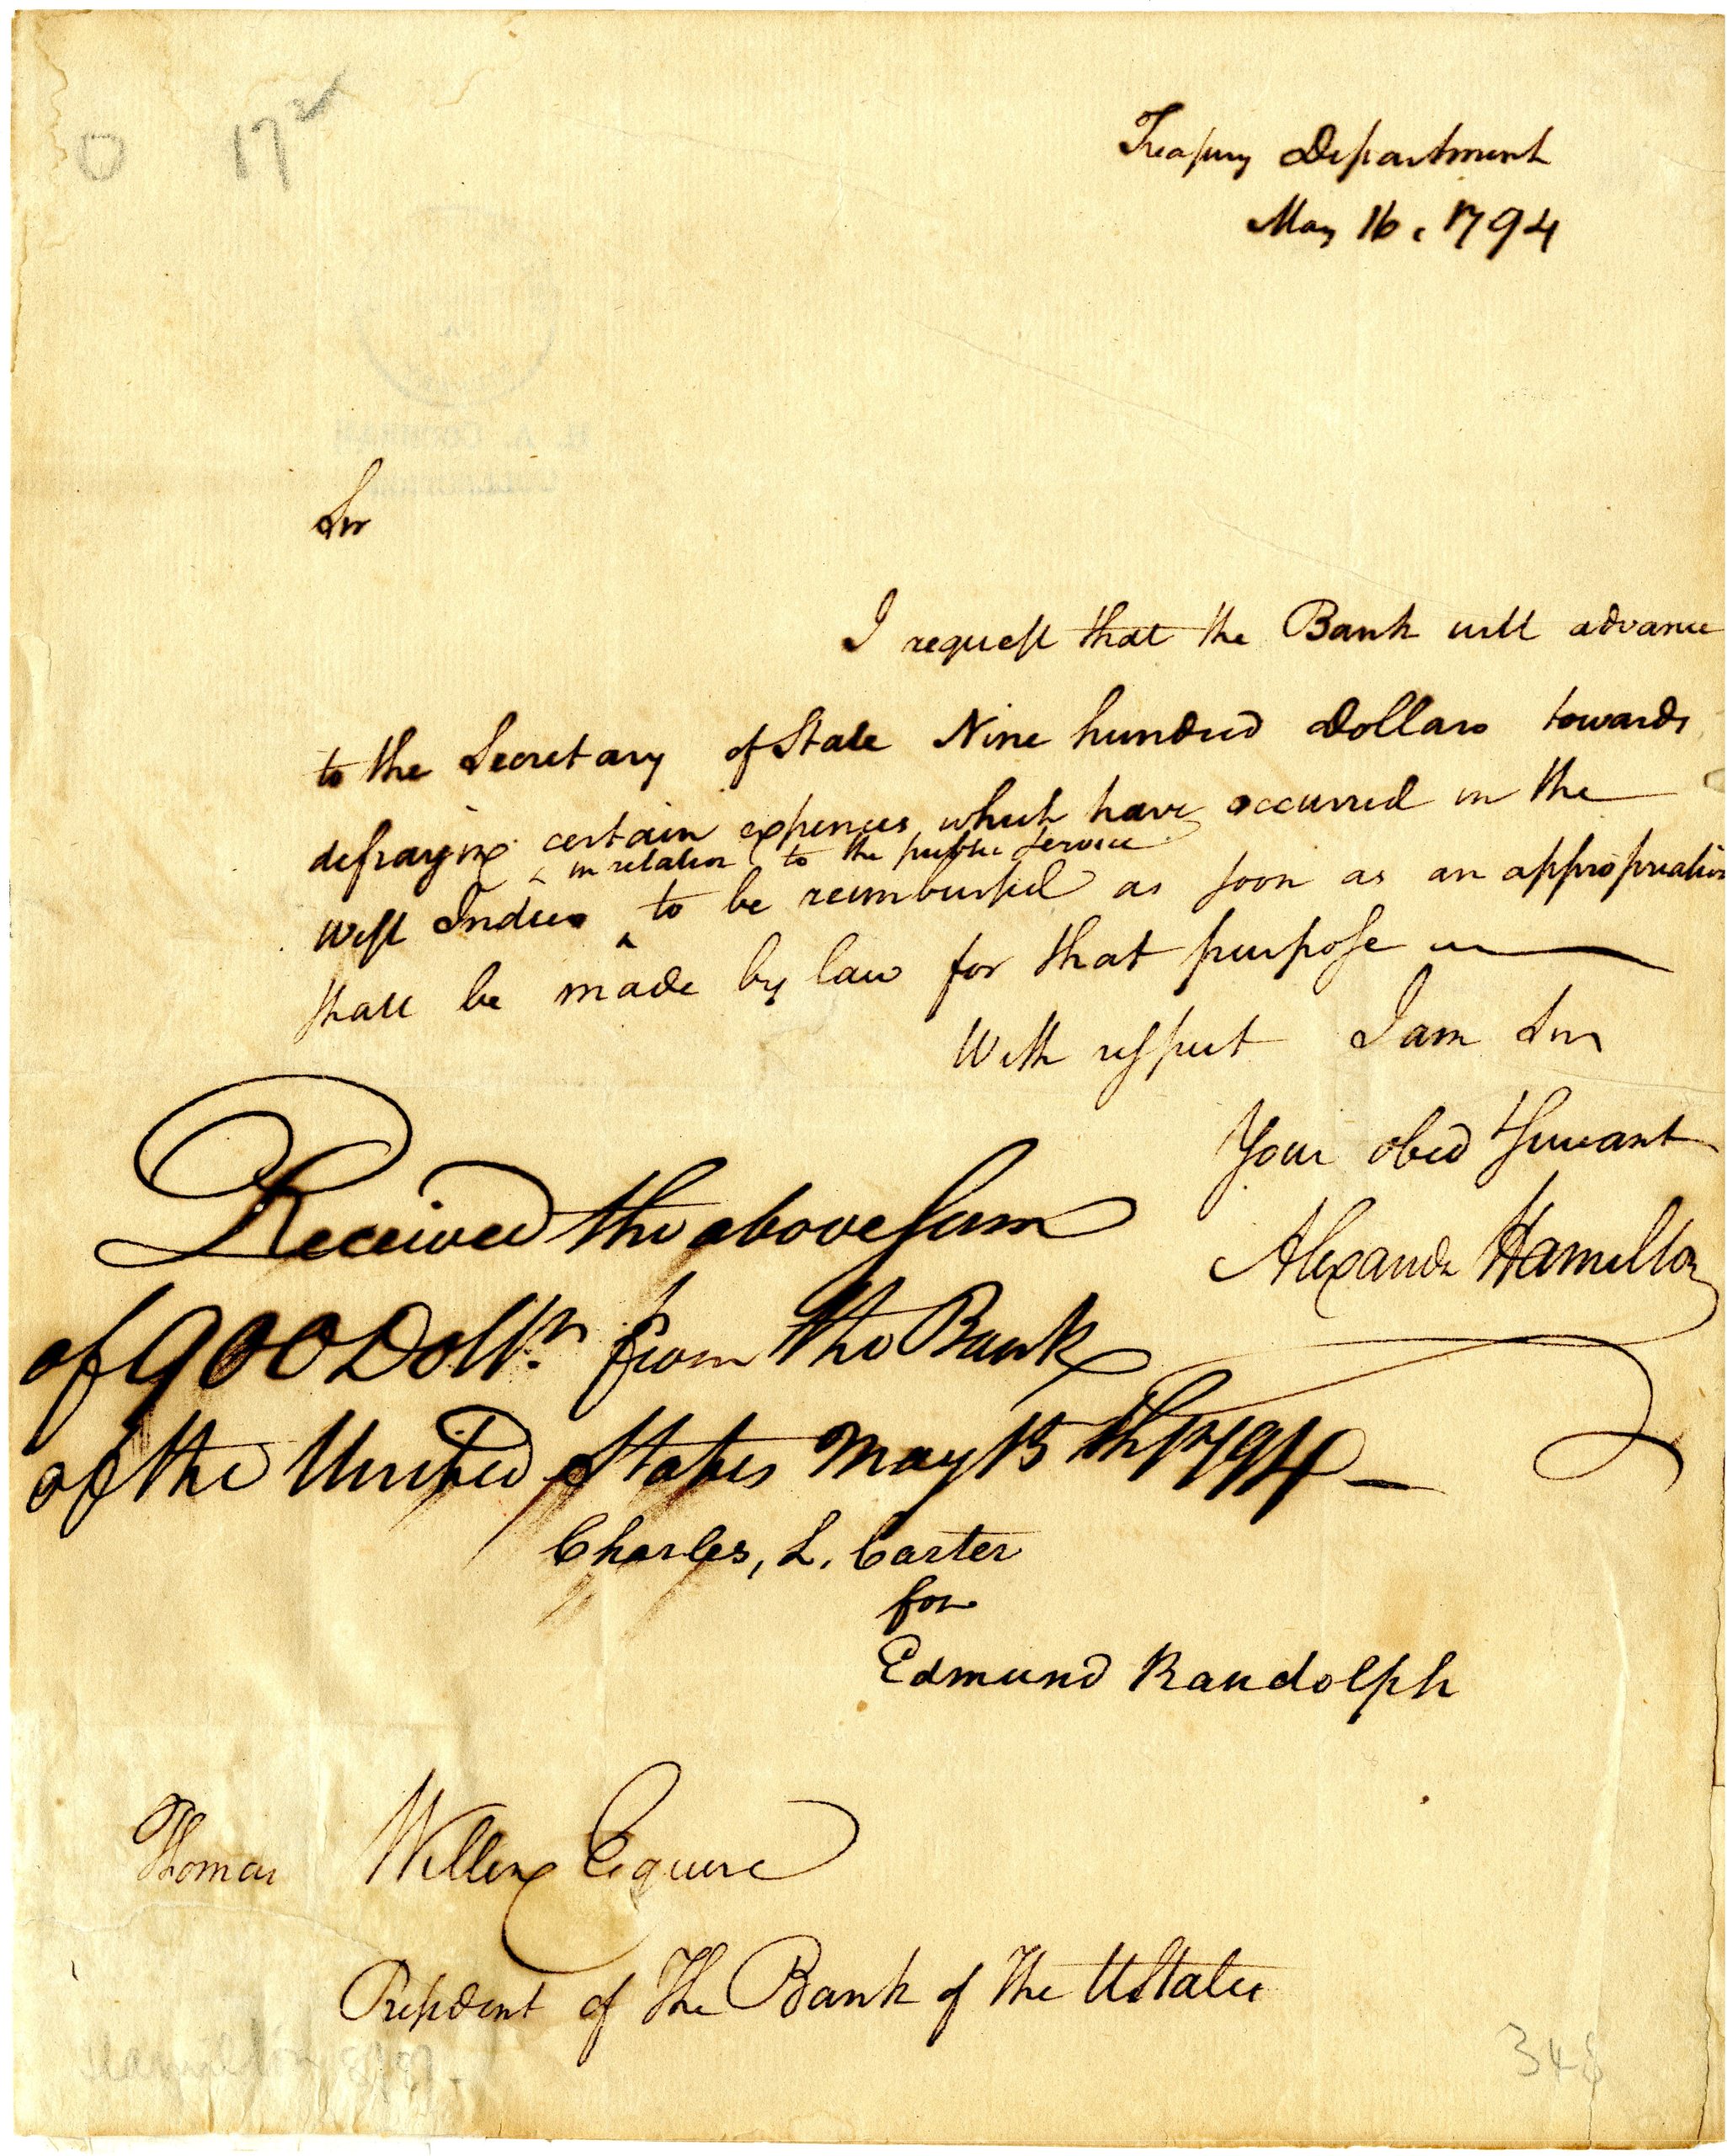 17
Treasury Department
May 16, 1794
Sir
I request that the Bank will advance
to the Secretary of State Nine hundred Dollars towards
defraying certain expences which have occurred in the
in relation to the public service
West Indies to be reimbursed as soon as an appropriation
shall be made by law for that purpose
With respect I am Sir
Your obed Servant
Alexander Hamilton
Received the above sum
of 900 Dollrs. from the Bank
of the United States May 15th 1794
Charles, L. Carter
for
Edmund Randolph
Thomas Willing Esquire
President of The Bank of The UStates